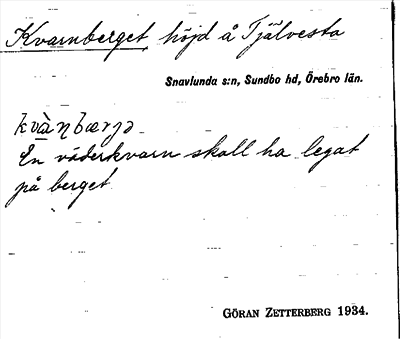 Kvarnberget, höjd å Tjälvesta
Snavlunda s:n, Sundbo hd, Örebro län.
kvàṇbærjə
En väderkvarn skall ha legat
på berget
GÖRAN ZETTERBERG 1934.